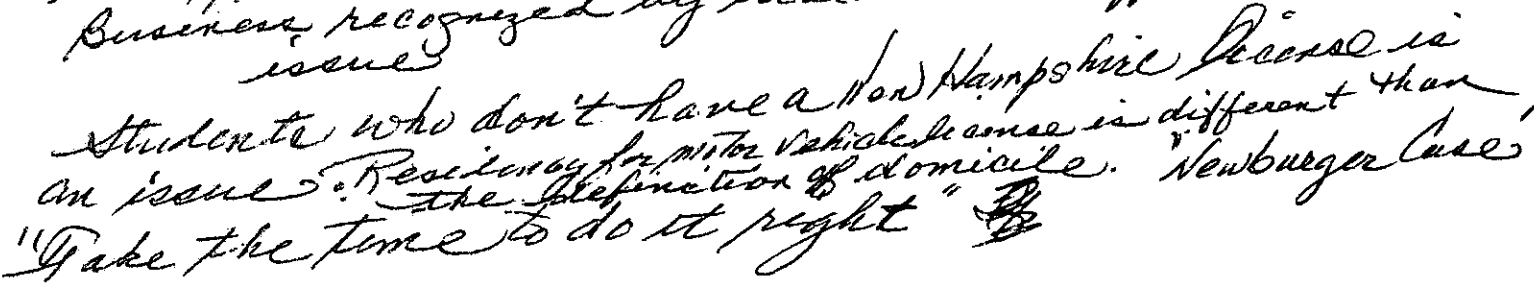 Business recognized by
issue
Students who don't have a New Hampshire License is
an issue. Residency for motor vehicle license is different than
the definition of domicile. "Newburger Case"
"Take the time to do it right"